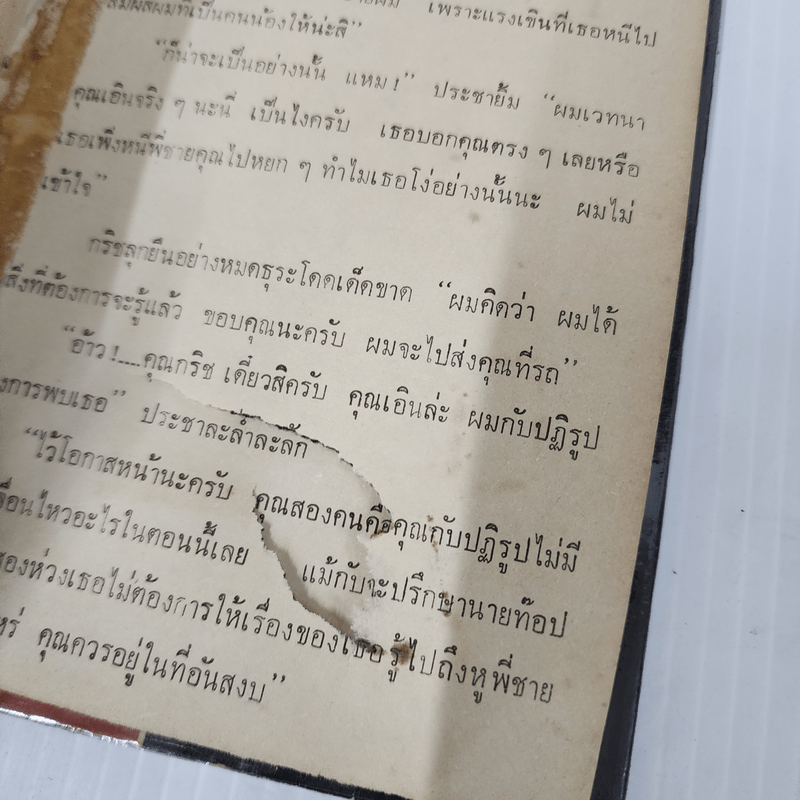 เพราะแรงเชินที่เธอหนีไป
ที่เป็นคนน้องให้น่ะสิ”
“ก็น่าจะเป็นอย่างนั้น แหม !” ประชายิ้ม “ผมเวทนา
คุณเอินจริง ๆ นะนี่ เป็นไงครับ เธอบอกคุณตรง ๆ เลยหรือ
เธอเพิ่งหนีพี่ชายคุณไปหยก ๆ ทำไมเธอโง่อย่างนั้นนะ ผมไม่
เข้าใจ”
กริชลุกยืนอย่างหมดธุระโดดเด็ดขาด “ผมคิดว่า ผมได้
สิ่งที่ต้องการจะรู้แล้ว ขอบคุณนะครับ ผมจะไปส่งคุณที่รถ”
“อ้าว !....คุณกริช เดี๋ยวสิครับ คุณเอินล่ะ ผมกับปฏิรูป
การพบเธอ” ประชาละล่ำละลัก
“ไว้โอกาสหน้านะครับ คุณสองคนคือคุณกับปฏิรูปไม่มี
ไหวอะไรในตอนนี้เลย แม้กับจะปรึกษานายท๊อป
ห่วงเธอไม่ต้องการให้เรื่องของเธอรู้ไปถึงหูพี่ชาย
คุณควรอยู่ในที่อันสงบ”